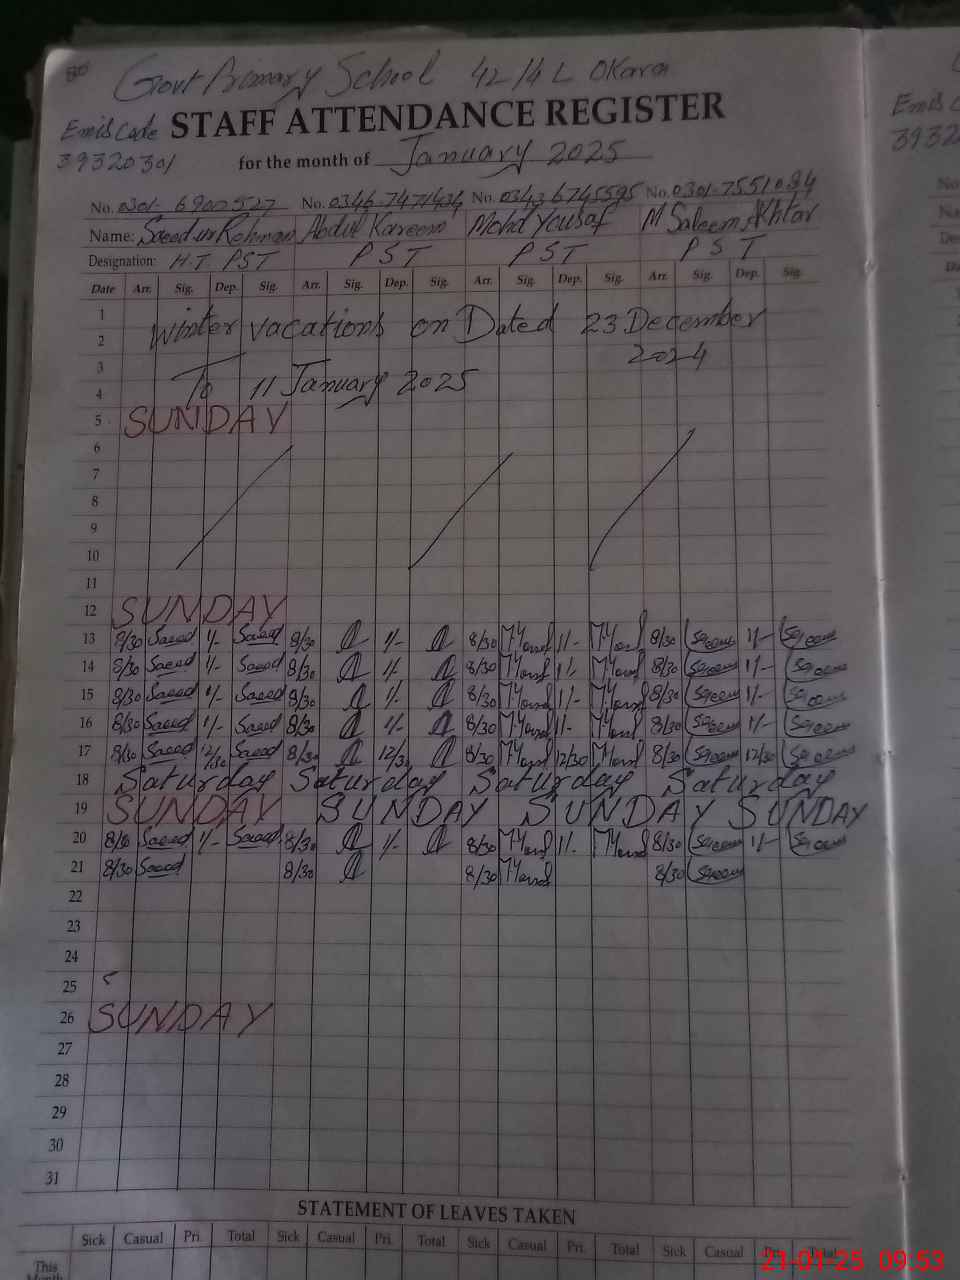 80
Govt Primary School 42/4 L Okara
Emis Code STAFF ATTENDANCE REGISTER
39320301 for the month of January 2025
No. 0301- 6902527 No. 0346-7471434 No. 0343 6745595 No. 0301-7551084
Name: Saeed ur Rehman Abdul Kareem Mohd Yousaf M Saleem Akhtar
Designation: H.T PST PST PST PST
Date Arr. Sig. Dep. Sig. Arr. Sig. Dep. Sig. Arr. Sig. Dep. Sig. Arr. Sig. Dep. Sig.
1
Winter vacations on Dated 23 December
2
3 2024
4 To 11 January 2025
5 SUNDAY
6
7
8
9
10
11
12 SUNDAY
13 8/30 Saeed 1/- Saeed 8/30 1/- 8/30 1/- 8/30 Saleem 1/- Saleem
14 8/30 Saeed 1/- Saeed 8/30 1/- 8/30 1/- 8/30 Saleem 1/- Saleem
15 8/30 Saeed 1/- Saeed 8/30 1/- 8/30 1/- 8/30 Saleem 1/- Saleem
16 8/30 Saeed 1/- Saeed 8/30 1/- 8/30 1/- 8/30 Saleem 1/- Saleem
17 8/30 Saeed 12/30 Saeed 8/30 12/30 8/30 12/30 8/30 Saleem 12/30 Saleem
18 Saturday Saturday Saturday Saturday
19 SUNDAY SUNDAY SUNDAY SUNDAY
20 8/30 Saeed 1/- Saeed 8/30 1/- 8/30 1/- 8/30 Saleem 1/- Saleem
21 8/30 Saeed 8/30 8/30 8/30 Saleem
22
23
24
25
26 SUNDAY
27
28
29
30
31
STATEMENT OF LEAVES TAKEN
Sick Casual Pri. Total Sick Casual Pri. Total Sick Casual Pri. Total Sick Casual Pri. Total
This
Month
21-01-25 09:53
Emis
3932